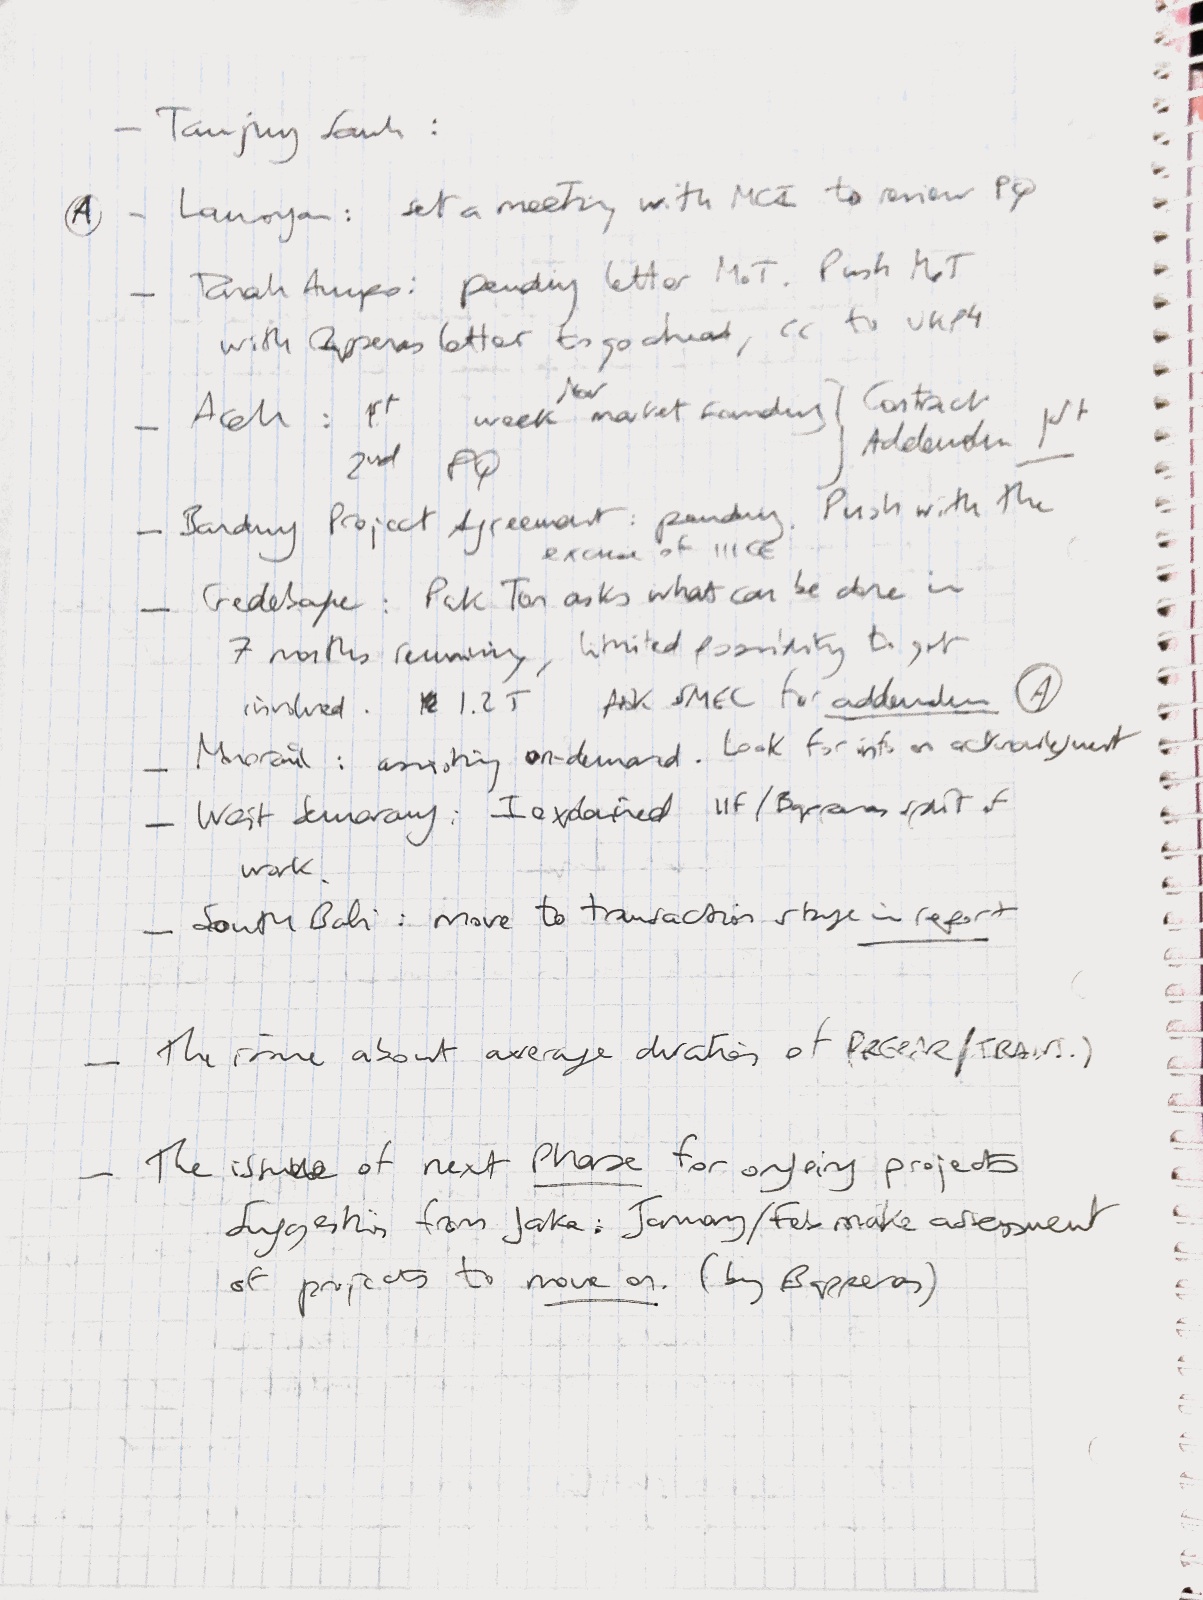 – Tanjung Sauh :
(A) – Lamongan : set a meeting with MCI to review PQ
– Tanah Ampo : pending letter MoT. Push MoT
with Bappenas letter to go ahead, cc to UKP4
– Aceh : 1st week Nov market sounding } Contract
2nd PQ Addendum 1st
– Bandung Project Agreement : pending. Push with the
excuse of IIICE
– Gedebage : Pak Ton asks what can be done in
7 months remaining, limited possibility to get
involved. 1.2 T Ask SMEC for addendum (A)
– Monorail : assisting on-demand. Look for info on acknowledgment
– West Semarang : I explained IIF/Bappenas split of
work.
– South Bali : move to transaction stage in report
– The issue about average duration of PREPAR/TRANS.)
– The issue of next Phase for ongoing projects
Suggestion from Jake : January/Feb make assessment
of projects to move on. (by Bappenas)